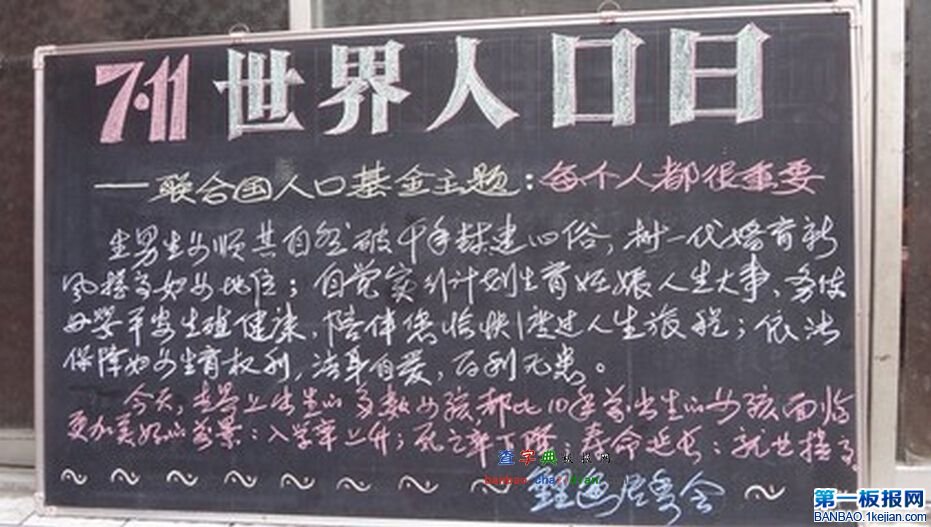 7·11 世界人口日
——联合国人口基金主题：每个人都很重要
生男生女顺其自然破千年封建旧俗，树一代婚育新
风提高妇女地位；自觉实行计划生育妊娠人生大事，务使
母婴平安生殖健康，陪伴您愉快度过人生旅程；依法
保障妇女生育权利，洁身自爱，百利无患。
今天，世界上出生的多数女孩都比10年前出生的女孩面临
更加美好的前景：入学率上升；死亡率下降；寿命延长；就业提高
查字典 板报网
banbao.chazidian
居委会
第一板报网
BANBAO.1kejian.com